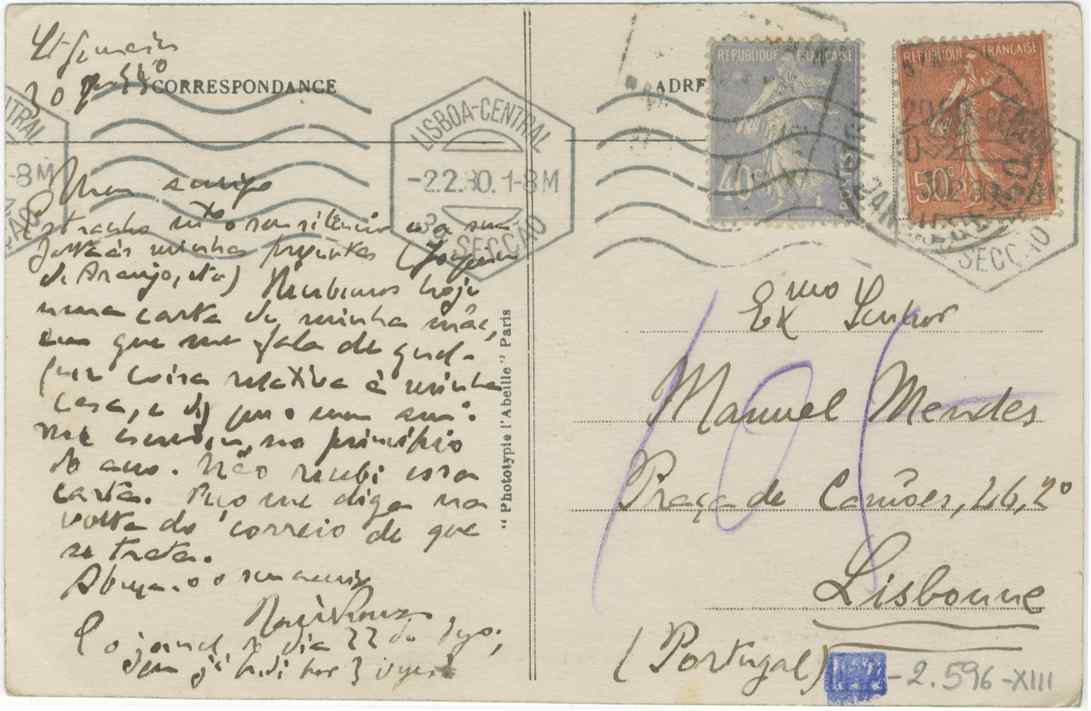 St-Germain
30
CORRESPONDANCE
ADR
RÉPUBLIQUE FRANÇAISE
40c
RÉPUBLIQUE FRANÇAISE
50c
LISBOA-CENTRAL
-2.2.30.1-8M
3ª SECÇÃO
SECÇÃO
Meu amigo
Estranho mto o seu silencio
às minhas perguntas
de Araujo, etc) Recebemos hoje
uma carta de minha mãe,
em que me fala de qual-
quer coisa relativa à minha
casa, e diz que o meu ami-
no principio
do ano. Não recebi essa
carta. Peço me diga na
volta do correio de que
se trata.
Abraça-o o seu amigo
E o jornal, dia 22
já pedi por 3 vezes
"Phototypie l'Abeille" Paris
Exmo Senhor
Manuel Mendes
Praça de Camões, 46, 2º
Lisbonne
(Portugal)
-2.596-XIII